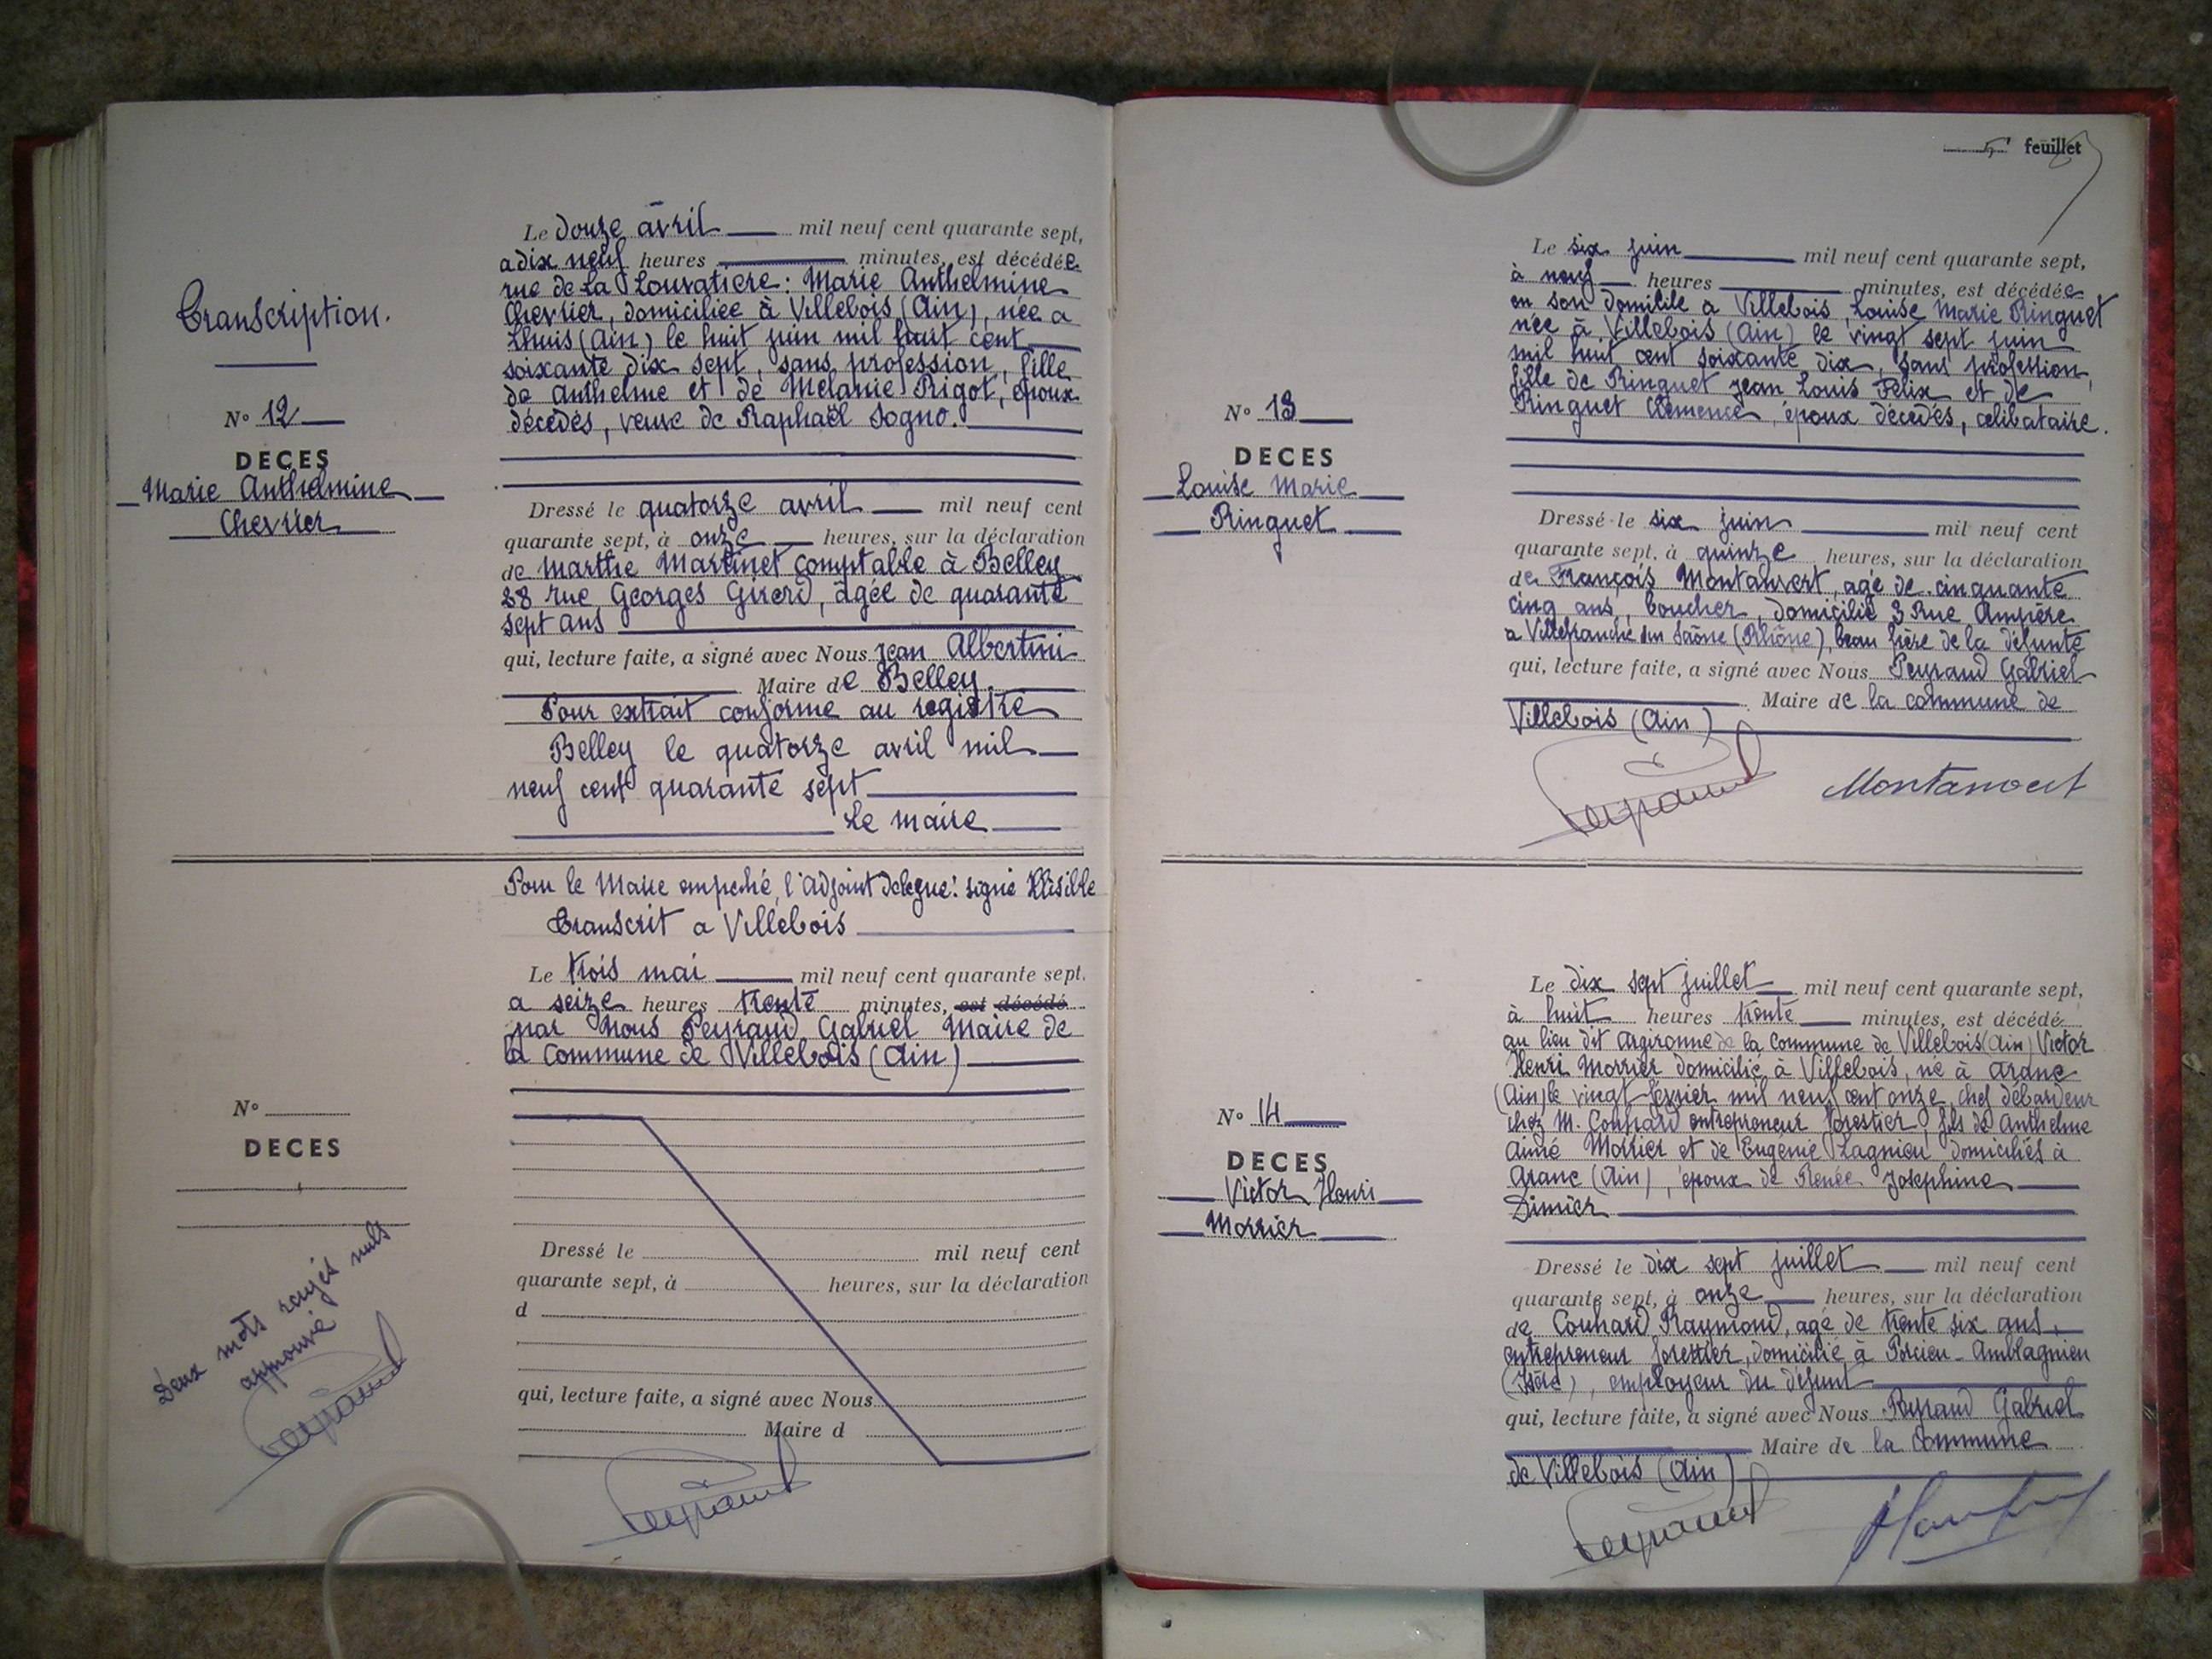 Transcription.
N° 12
DECES
Marie Anthelmine
Chevrier
Le douze avril mil neuf cent quarante sept,
a dix neuf heures minutes, est décédée
rue de la Louvatière: Marie Anthelmine
Chevrier, domiciliée à Villebois (Ain), née a
Lhuis (Ain) le huit juin mil huit cent
soixante dix sept, sans profession, fille
de Anthelme et de Mélanie Rigot, époux
décédés, veuve de Raphaël Sogno.
Dressé le quatorze avril mil neuf cent
quarante sept, à onze heures, sur la déclaration
de Marthe Martinet comptable à Belley
28 rue Georges Girerd, agée de quarante
sept ans
qui, lecture faite, a signé avec Nous Jean Albertini
Maire de Belley.
Pour extrait conforme au registre
Belley le quatorze avril mil
neuf cent quarante sept
Le maire
Pour le Maire empeché, l'adjoint delegué: signé Illisible
Transcrit a Villebois
Le trois mai mil neuf cent quarante sept.
a seize heures trente minutes, est décédé
par Nous Peyraud Gabriel Maire de
la Commune de Villebois (Ain)
N°
DECES
Dressé le mil neuf cent
quarante sept, à heures, sur la déclaration
d
qui, lecture faite, a signé avec Nous
Maire d
Deux mots rayés nuls
approuvé
Peyraud
Peyraud
5 feuillet
N° 13
DECES
Louise Marie
Ringuet
Le six juin mil neuf cent quarante sept,
à neuf heures minutes, est décédée
en son domicile a Villebois, Louise Marie Ringuet
née à Villebois (Ain) le vingt sept juin
mil huit cent soixante dix, sans profession,
fille de Ringuet Jean Louis Félix et de
Ringuet Clémence, époux décédés, célibataire.
Dressé le six juin mil neuf cent
quarante sept, à quinze heures, sur la déclaration
de François Montanvert, agé de cinquante
cinq ans, boucher, domicilié 3 Rue Ampère
a Villefranche sur Saône (Rhône), beau frère de la défunte
qui, lecture faite, a signé avec Nous Peyraud Gabriel
Maire de la commune de
Villebois (Ain)
Peyraud Montanvert
N° 14
DECES
Victor Henri
Morrier
Le dix sept juillet mil neuf cent quarante sept,
à huit heures trente minutes, est décédé
au lieu dit Argironne de la Commune de Villebois (Ain) Victor
Henri Morrier domicilié à Villebois, né à Aranc
(Ain) le vingt février mil neuf cent onze, chef débardeur
chez M. Couhard entrepreneur forestier, fils de Anthelme
Aimé Morrier et de Eugénie Lagnieu domiciliés à
Aranc (Ain), époux de Renée Josephine
Dimier
Dressé le dix sept juillet mil neuf cent
quarante sept, à onze heures, sur la déclaration
de Couhard Raymond, agé de trente six ans,
entrepreneur forestier, domicilié à Porcieu-Amblagnieu
(Isère), employeur du défunt
qui, lecture faite, a signé avec Nous Peyraud Gabriel
Maire de la Commune
de Villebois (Ain)
Peyraud